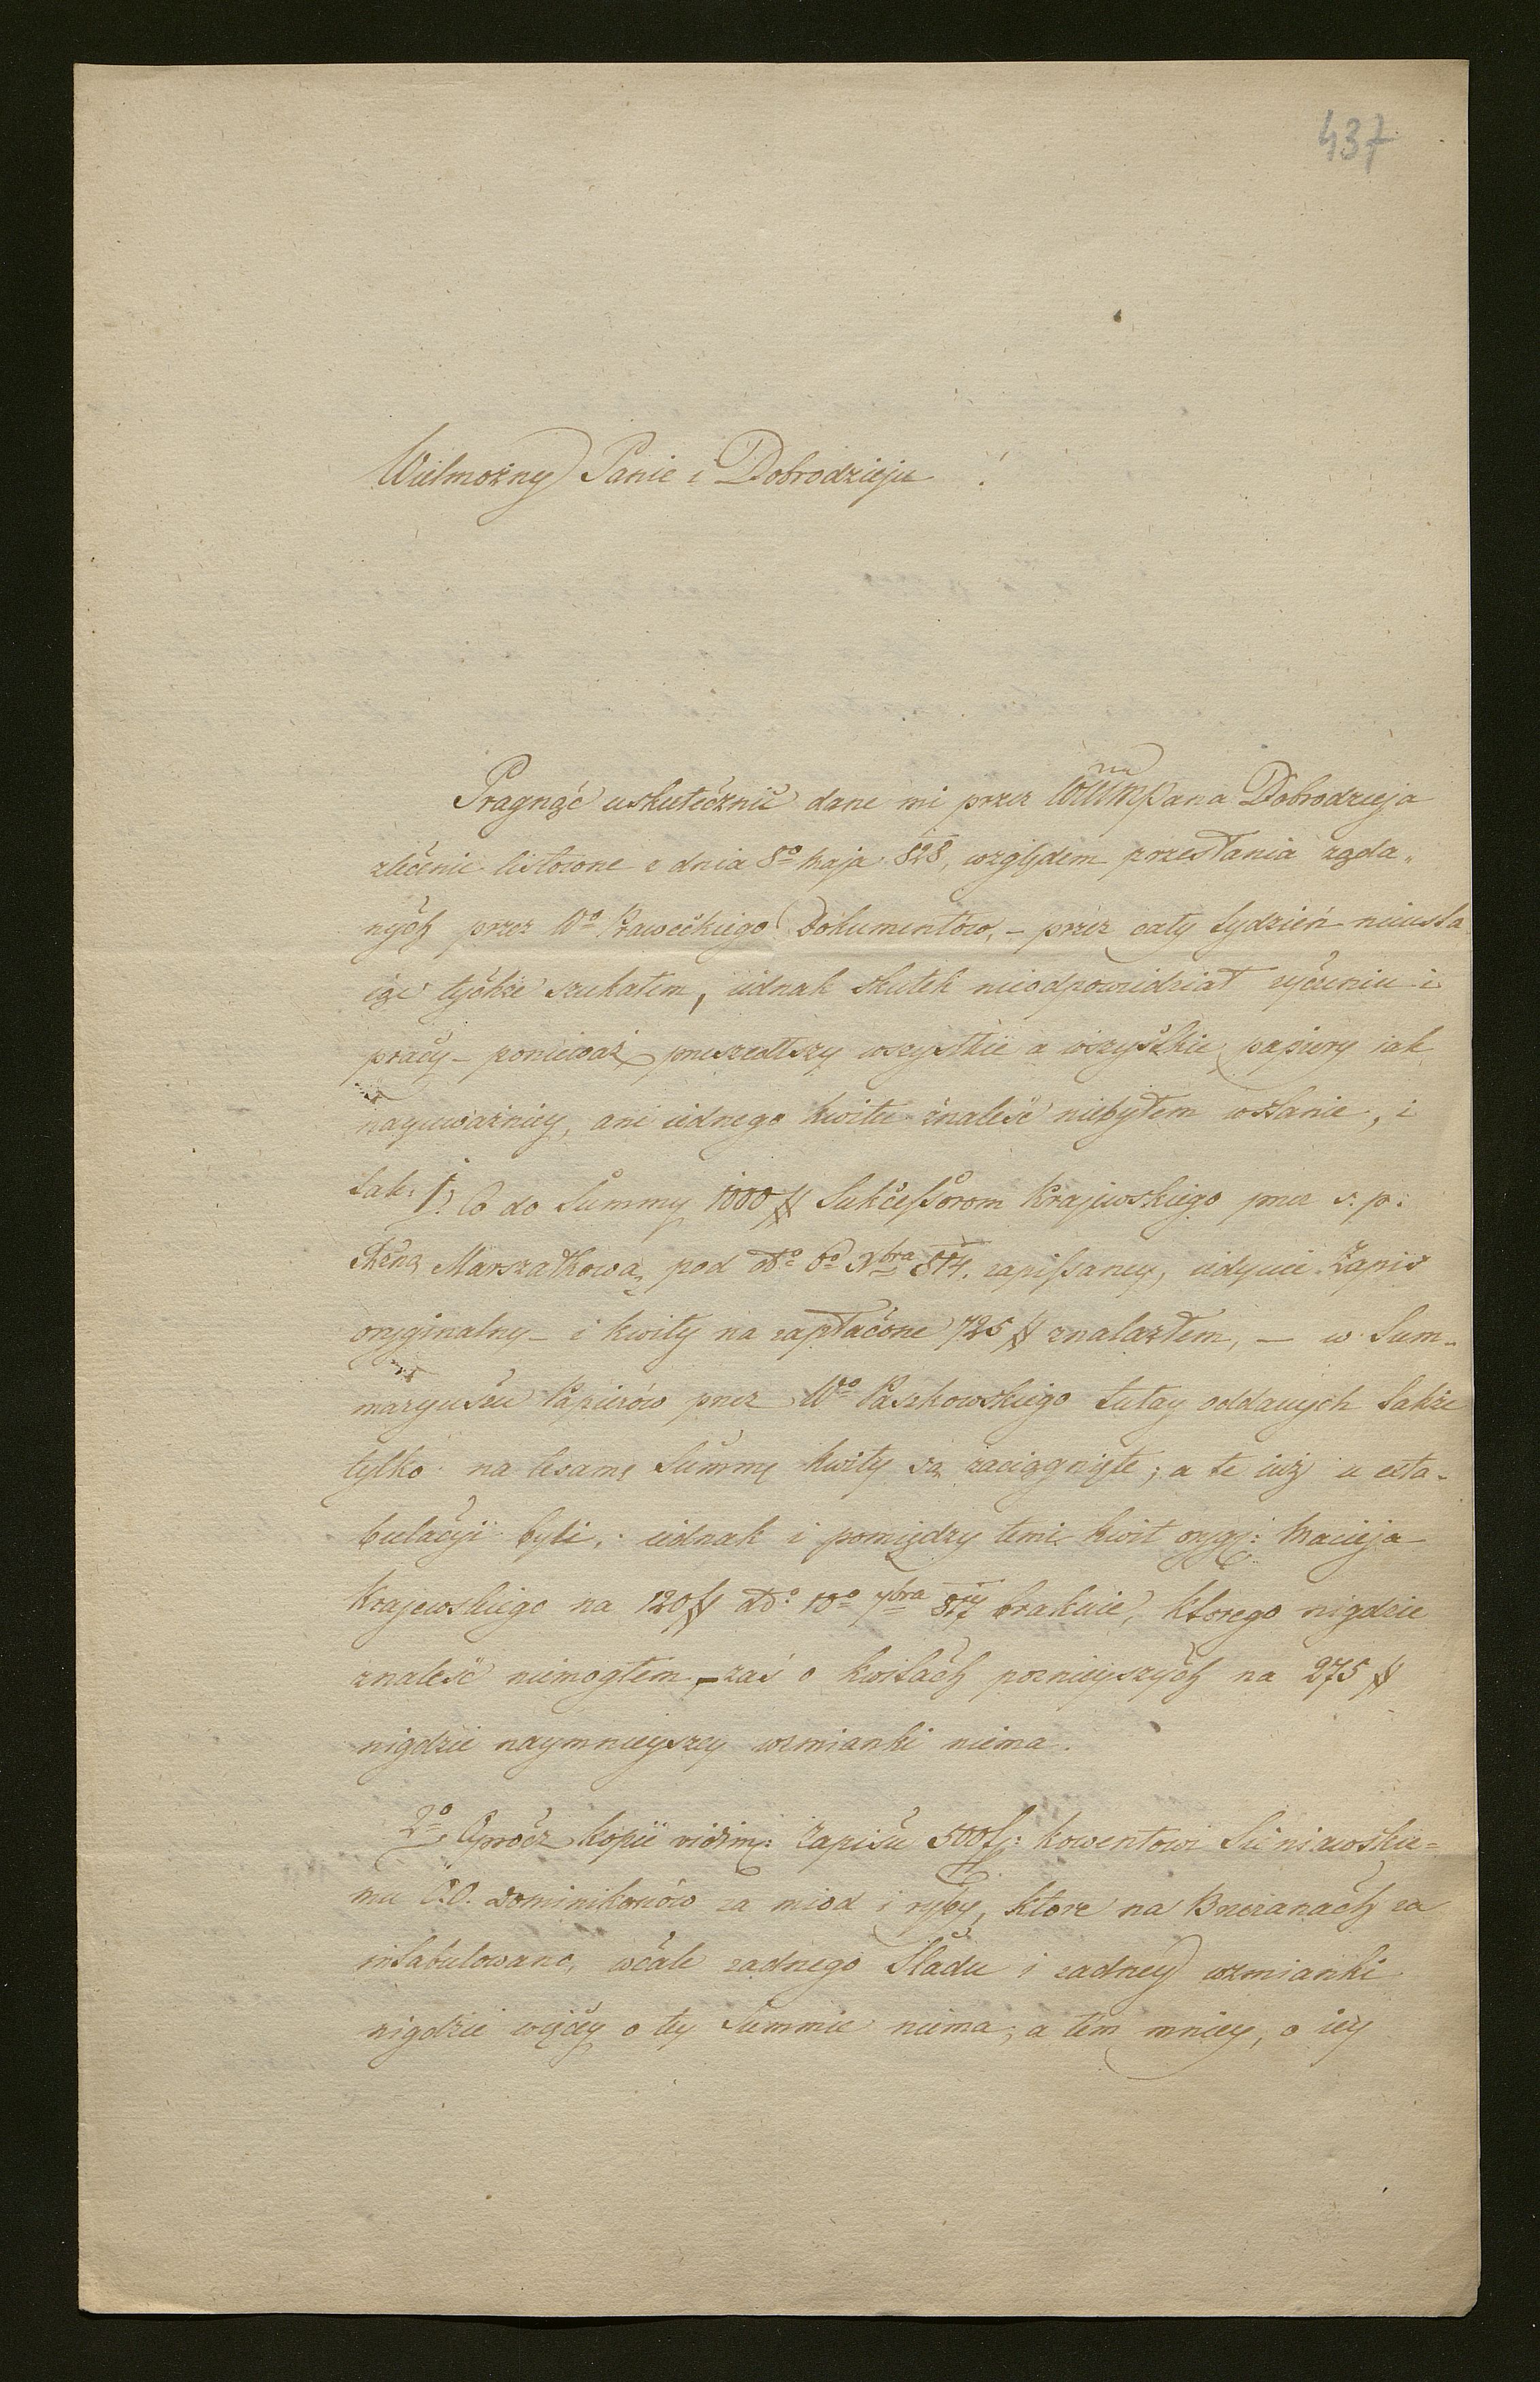 437
Wielmożny Panie i Dobrodzieju !
Pragnąc uskutecznić dane mi przez Pana Dobrodzieja
zlecenie listowne z dnia 8º Maja 828, względem przesłania żąda„
nych przez Wº Raweckiego Dokumentów, – przez cały tydzień nieusta
iąc tychże szukałem, iednak skutek nieodpowiedział życzeniu i
pracy – ponieważ przeszedłszy wszystkie a wszystkie papiery iak
nayuważniey, ani iednego kwitu znaleść niebyłem wstanie, i
tak: 1º Co do Summy 1000 f Sukcessorom Krajewskiego przez s. p.
Marszałkową pod ddº 6º Xbra 814. zapissaney, iedynie Zapis
oryginalny – i kwity na zapłacone 725 f znalazłem, – w Sum„
maryuszu Papierów przez Wº Paszkowskiego tutay oddanych także
tylko na tesamę Summę kwity są zaciągnięte; a te iuż u exta„
bulacyi byli, : iednak i pomiędzy temi kwit oryg: Macieja
Krajewskiego na 120 f ddº 10º 7bra 817 brakuie, ktorego nigdzie
znaleść niemogłem, – zaś o kwitach poznieyszych na 275 f
nigdzie naymnieyszey wzmianki niema.
2º Oprócz kopii vidim: zapisu 500 f: kowentowi Sieniawskie=
mu O.O. Dominikanów za miod i ryby, ktore na Brzeżanach za
intabulowano, wcale zadnego Sladu i zadney wzmianki
nigdzie więcey o tey Summie niema, a tém mniey, o iey